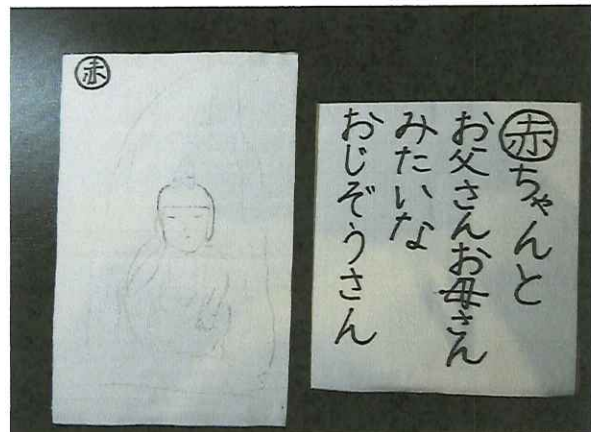 赤
赤ちゃんと
お父さんお母さん
みたいな
おじぞうさん